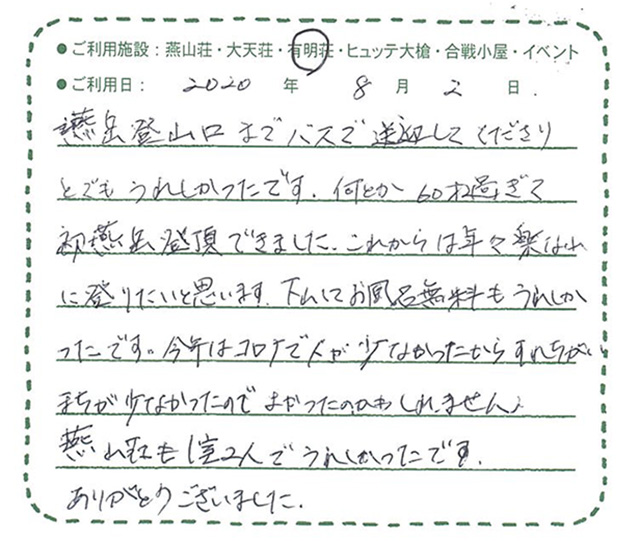 ●ご利用施設：燕山荘・大天荘・有明荘・ヒュッテ大槍・合戦小屋・イベント
●ご利用日： 2020 年 8 月 2 日.
燕岳登山口までバスで送迎してくださり
とてもうれしかったです. 何とか60才過ぎて
初燕岳登頂できました. これからは年々楽な山
に登りたいと思います. 下山してお風呂無料もうれしか
ったです。今年はコロナで人が少なかったからすれちがい
まちが少なかったのでよかったのかもしれません♪
燕山荘も1室2人でうれしかったです.
ありがとうございました.